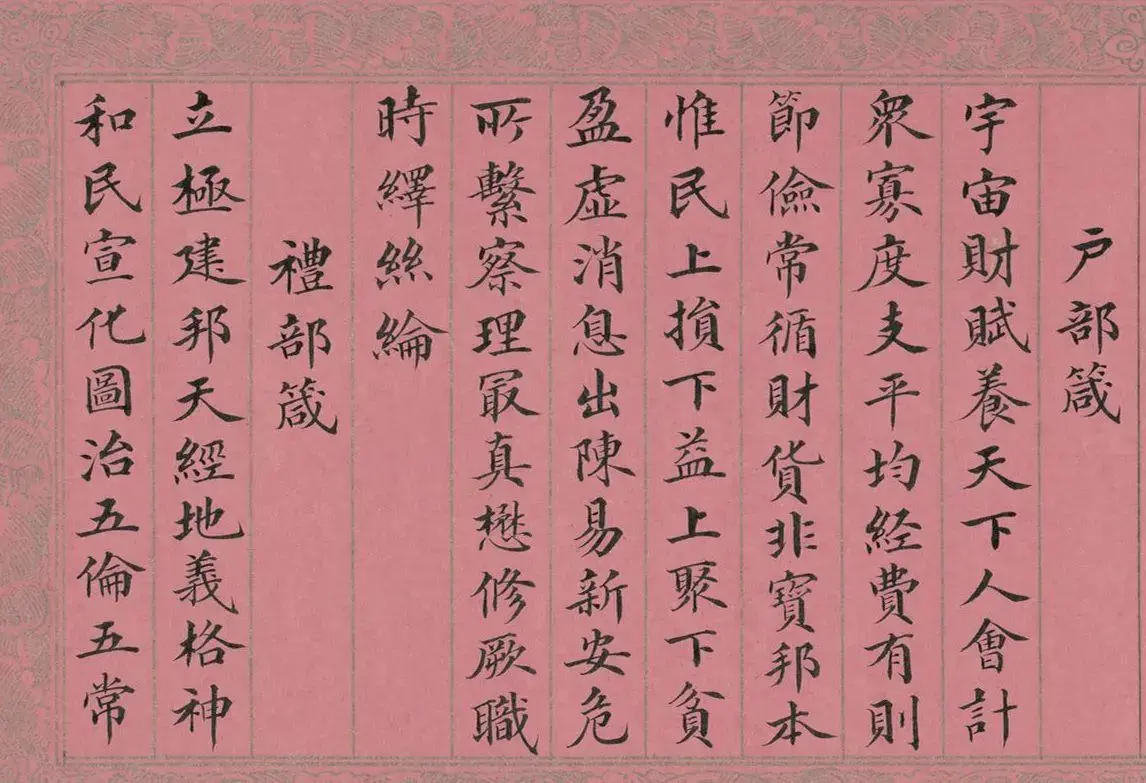 戶部箴
宇宙財賦養天下人會計
衆寡度支平均經費有則
節儉常循財貨非寶邦本
惟民上損下益上聚下貧
盈虛消息出陳易新安危
所繫察理冣真懋修厥職
時繹絲綸
禮部箴
立極建邦天經地義格神
和民宣化圖治五倫五常